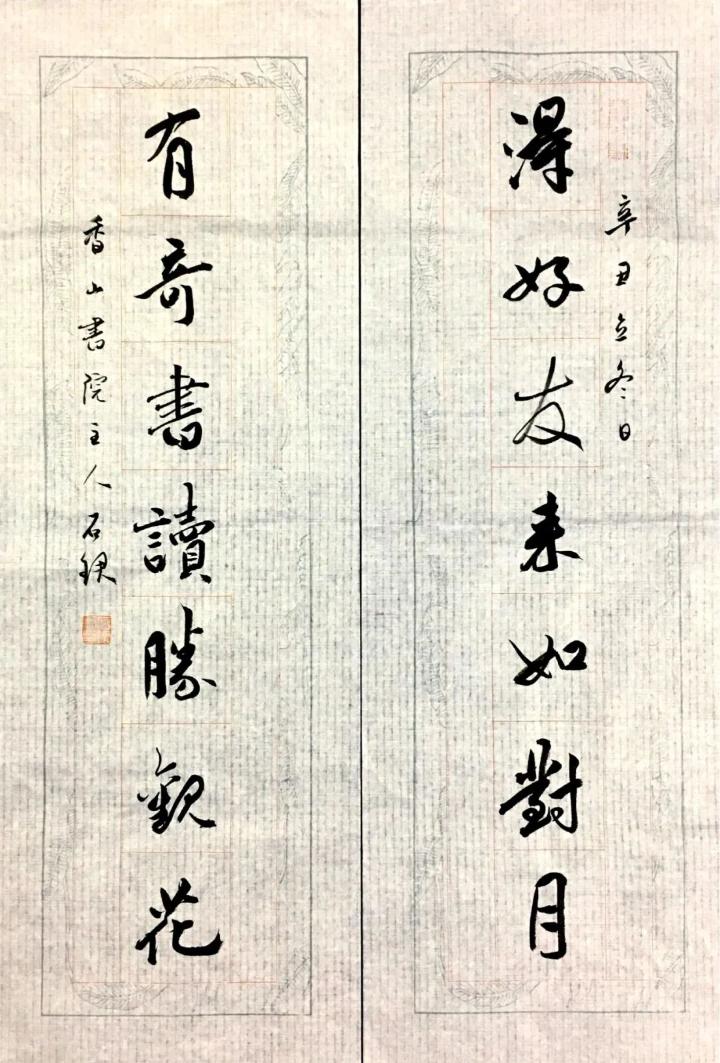 辛丑立冬日
得好友来如對月
有奇書讀勝觀花
香山書院主人石琪